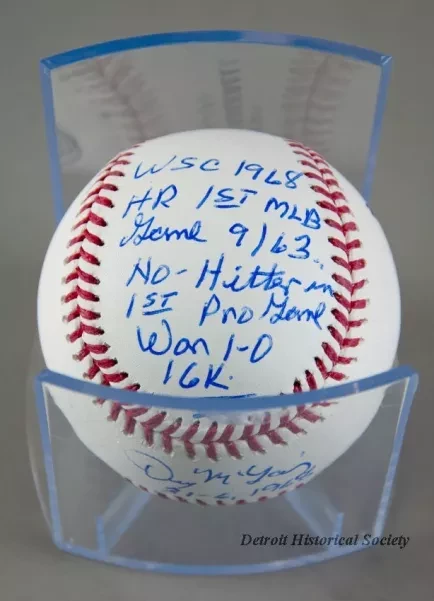 WSC 1968
HR 1ST MLB
Game 9/63.
No-Hitter in
1ST Pro Game
Won 1-0
16K.
Denny McLain
31-6, 1968
Detroit Historical Society